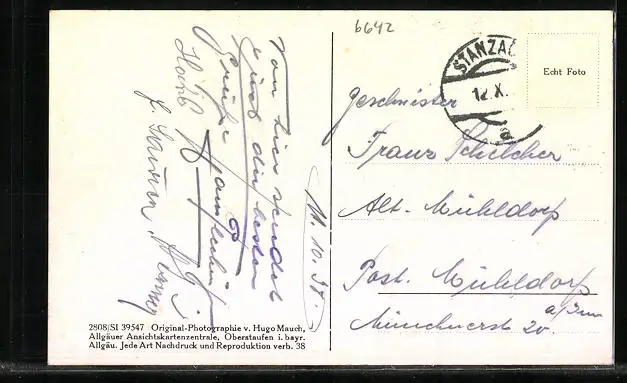 6642
STANZAC
12.X.
Echt Foto
11. 10. 38.
Von hier sendet
Euch die besten
Grüße
Geschwister
Franz Schilcher
Alt. Mühldorf
Post. Mühldorf
a/Inn
Münchnerst 20.
2808/SI 39547 Original-Photographie v. Hugo Mauch,
Allgäuer Ansichtskartenzentrale, Oberstaufen i. bayr.
Allgäu. Jede Art Nachdruck und Reproduktion verb. 38